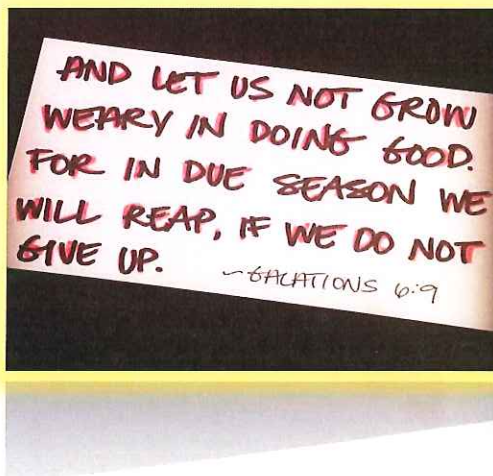 AND LET US NOT GROW
WEARY IN DOING GOOD.
FOR IN DUE SEASON WE
WILL REAP, IF WE DO NOT
GIVE UP. ~GALATIONS 6:9